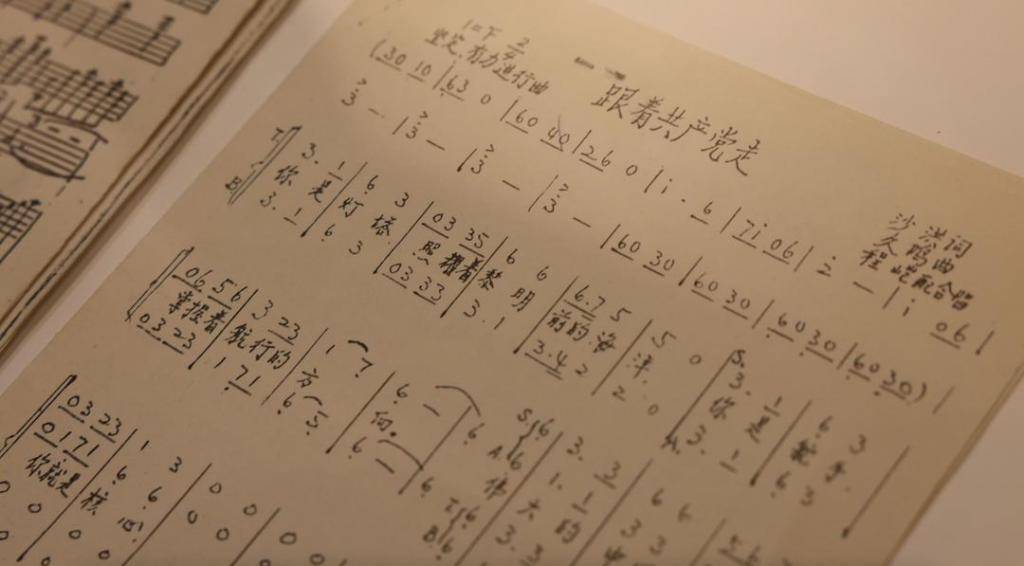 跟着共产党走
1=F 2/4
坚定有力进行曲
沙洪词
久鸣曲
程屹配合唱
(30 10 | 63 0 | 60 40 | 26 0 | i · 6 | 7i 06 | 2 — | i 06 |
3 — | 3 — | 3 — | 3 — | 60 30 | 60 30 | 60 30 | 60 30) |
3. 1 | 6 3 | 03 35 | 6 6 | 6.7 5 | 5 0 | 3. 1 | 6 3
你是灯塔 照耀着黎明前的海洋 你是舵手
3. 1 | 6 3 | 03 33 | 3. 1 | 3.4 2 | 2 0 | 3. 1 | 6 3
06 56 | 3 23 | 1 7 | 6 — | 6
掌握着航行的方向。 伟大的
03 23 | 1 71 | 6 5 | 6 — | 6
03 23 | 1 3 | 0 0
017 1 | 6 6 | 0 0
你就是核心!